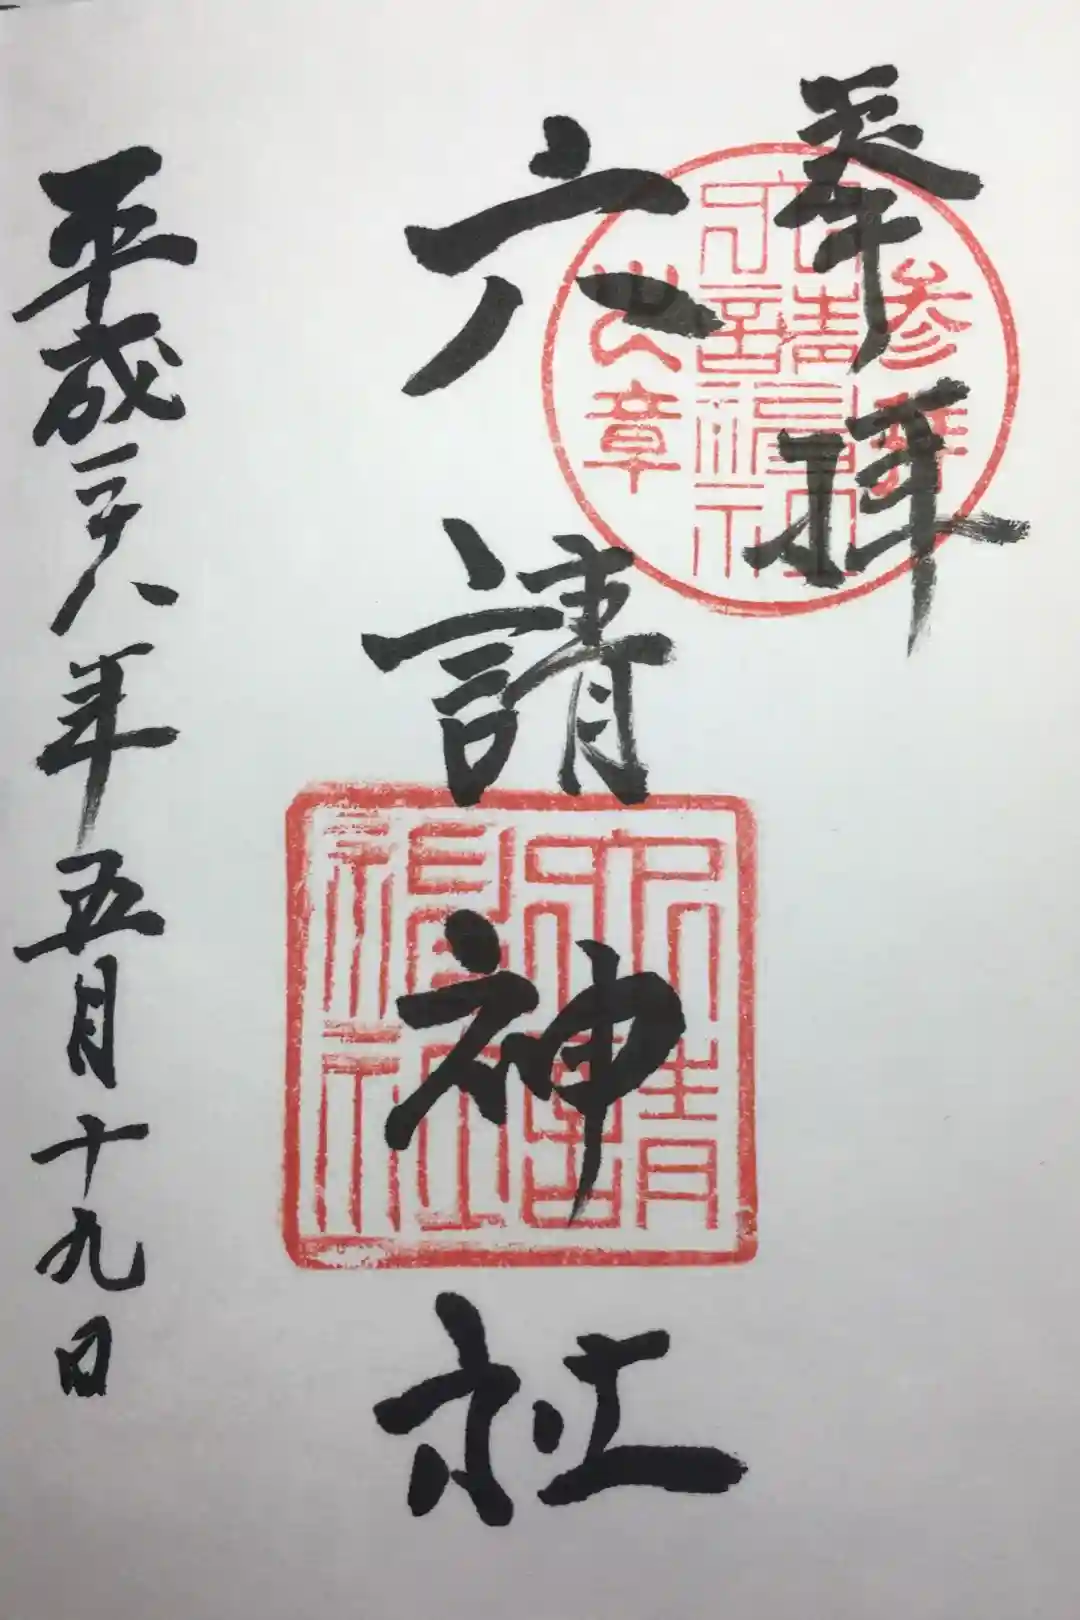 奉拝
六請神社
平成二十八年五月十九日
参拝
六請神社
之章
六請
神社